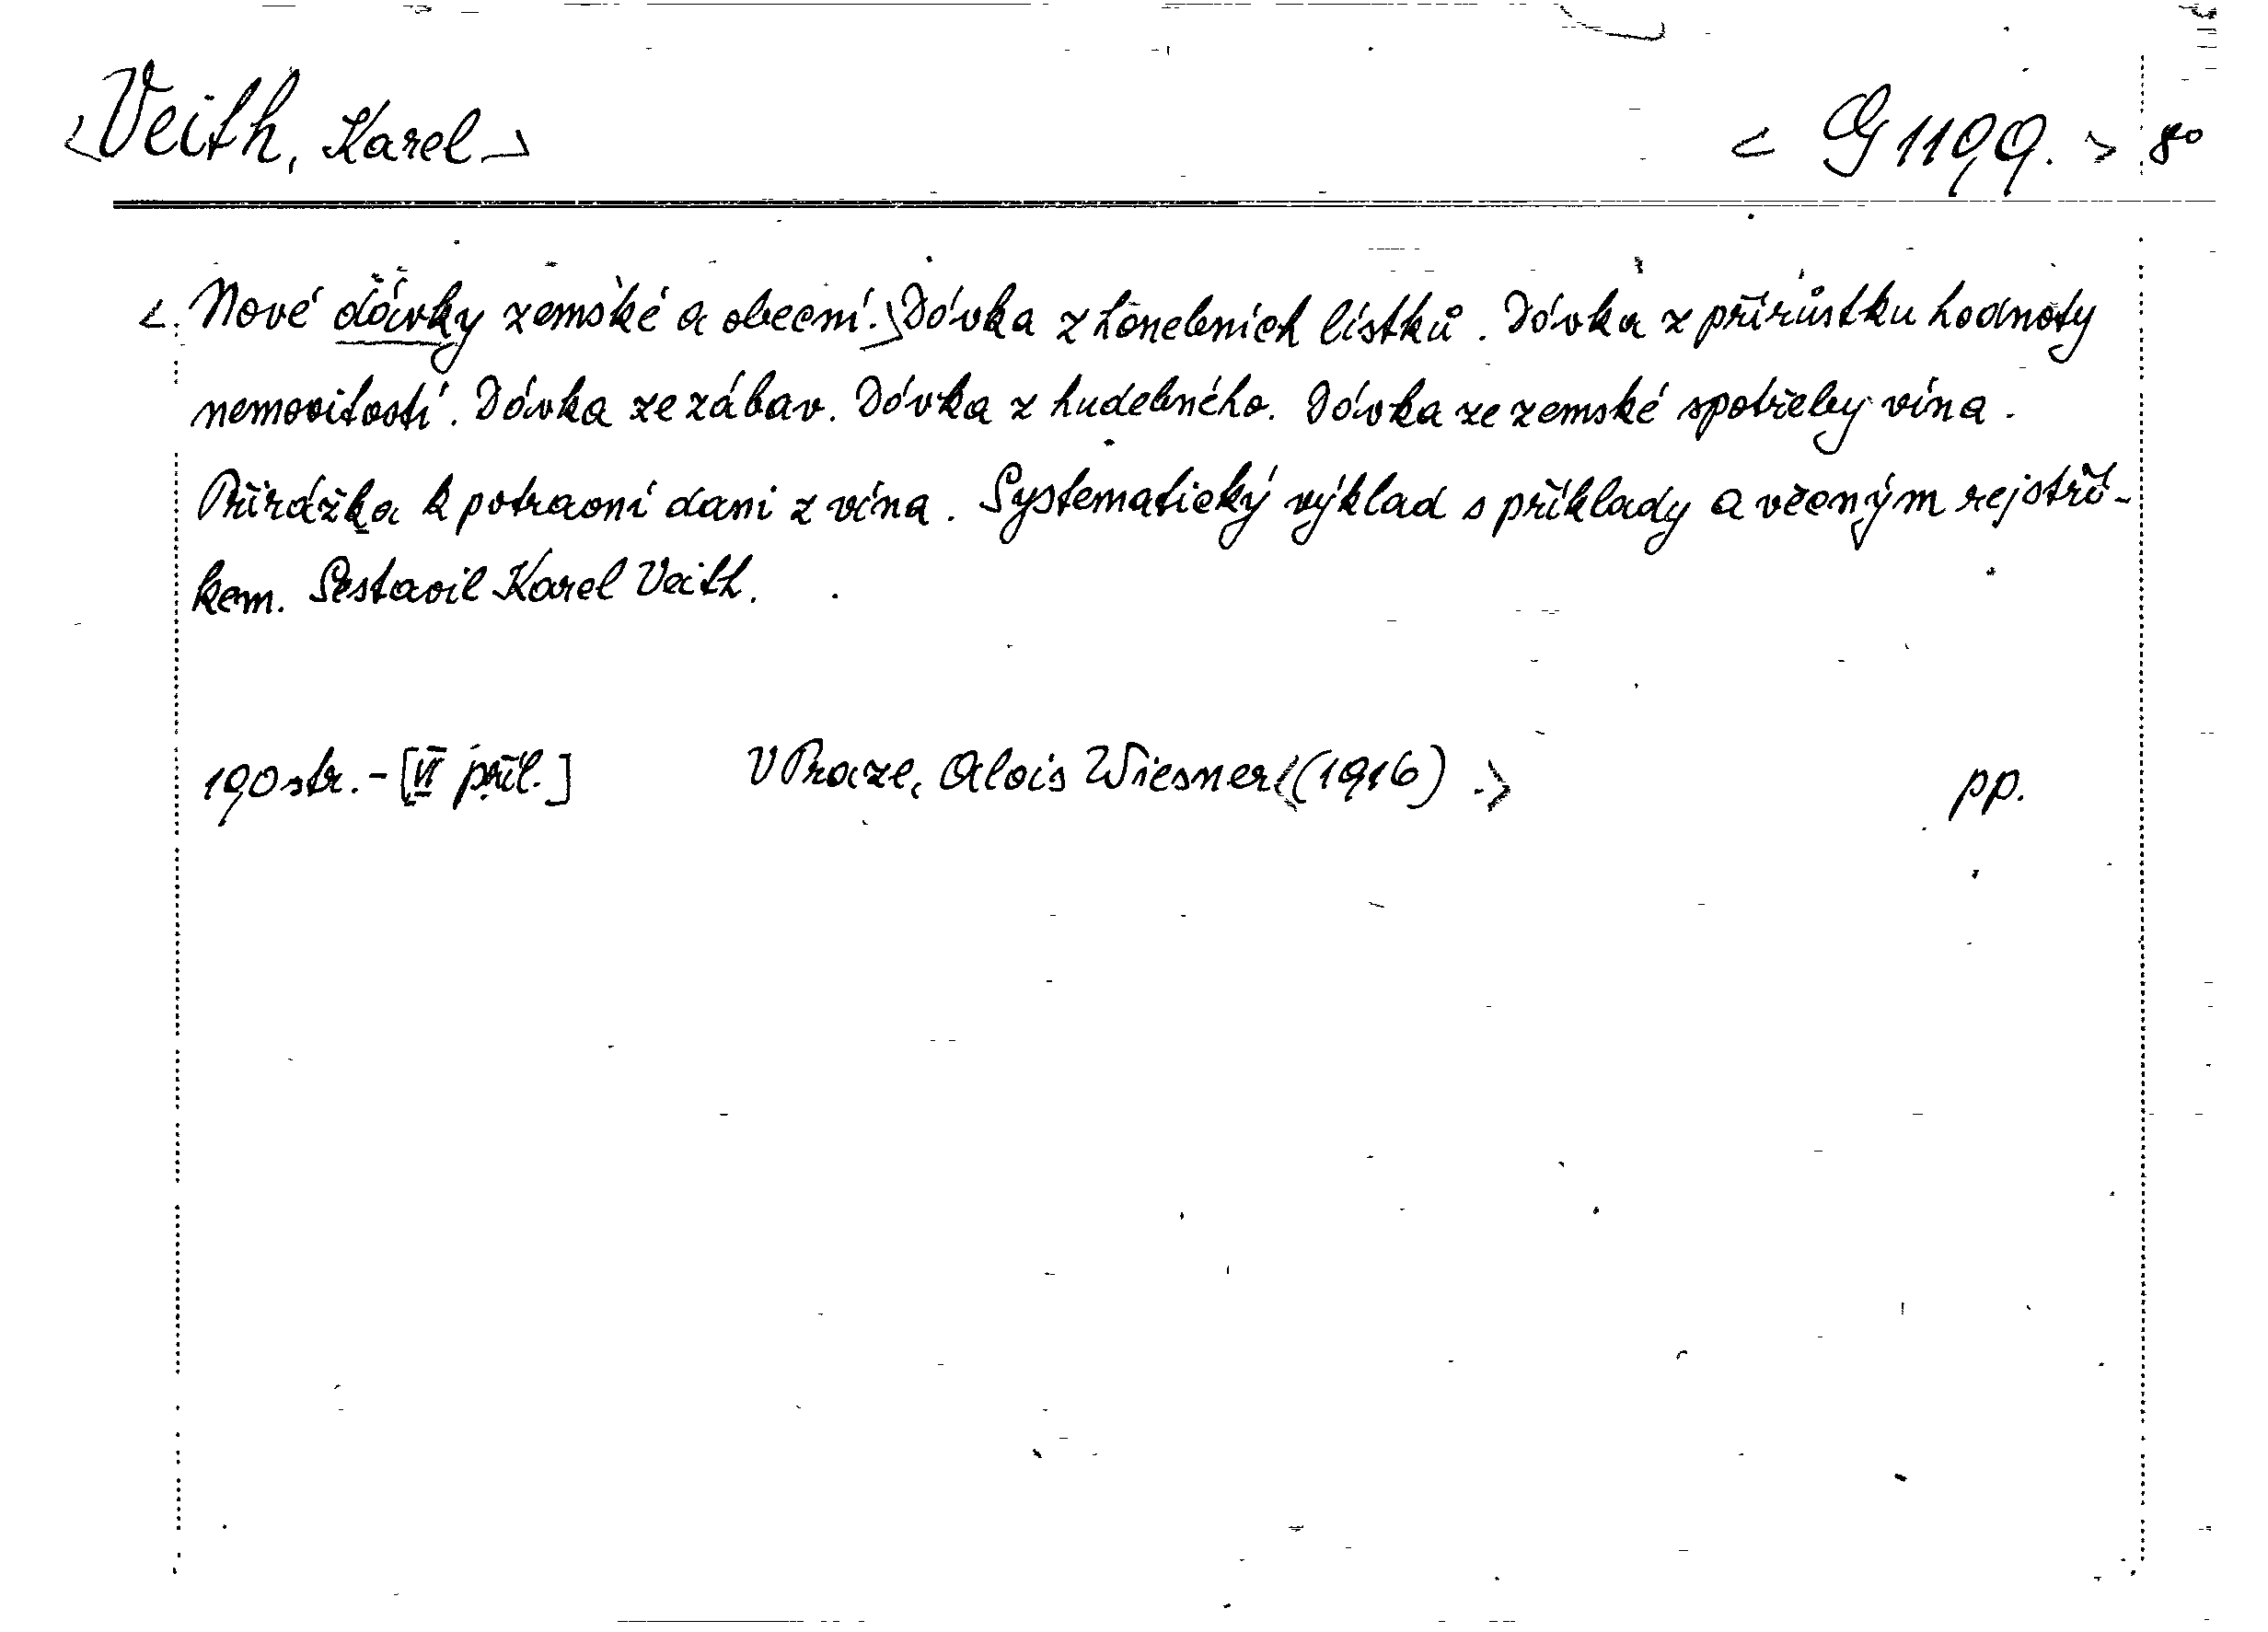 <Veith, Karel> < G 1199. > 8°
<. Nové dávky zemské a obecní.> Dávka z honebních lístků. Dávka z přírůstku hodnoty
nemovitostí. Dávka ze zábav. Dávka z hudebného. Dávka ze zemské spotřeby vína.
Přirážka k potravní dani z vína. Systematický výklad s příklady a věcným rejstří-
kem. Sestavil Karel Veith.
190 str. - [VI příl.] V Praze, Alois Wiesner <(1916) .> pp.